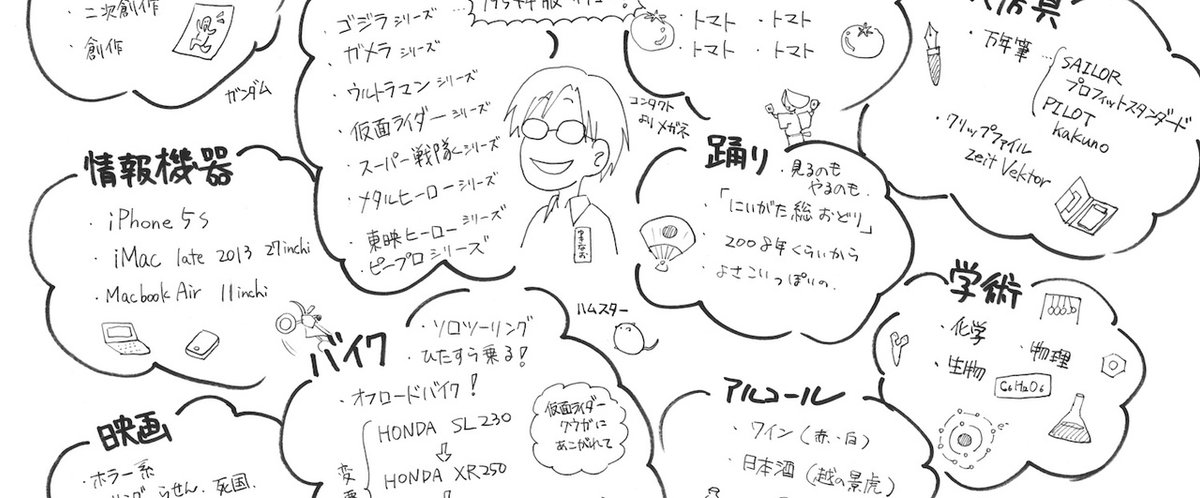 ・二次創作
・創作
ガンダム
・ゴジラシリーズ
・ガメラシリーズ
・ウルトラマンシリーズ
・仮面ライダーシリーズ
・スーパー戦隊シリーズ
・メタルヒーローシリーズ
・東映ヒーローシリーズ
・ピープロシリーズ
コンタクト
よりメガネ
・トマト ・トマト
・トマト ・トマト
・万年筆
SAILOR
プロフィットスタンダード
PILOT
kakuno
・クリップファイル
Zeit Vektor
情報機器
・iPhone 5s
・iMac late 2013 27inchi
・Macbook Air 11inchi
踊り
・見るのも
やるのも.
・「にいがた総おどり」
・2008年くらいから
・よさこいっぽいの.
ハムスター
学術
・化学
・物理
・生物
C6H12O6
バイク
・ソロツーリング
・ひたすら乗る!
・オフロードバイク!
HONDA SL230
HONDA XR250
仮面ライダー
クウガに
あこがれて
アルコール
・ワイン(赤・白)
・日本酒(越の景虎)
映画
・ホラー系
らせん.死国.